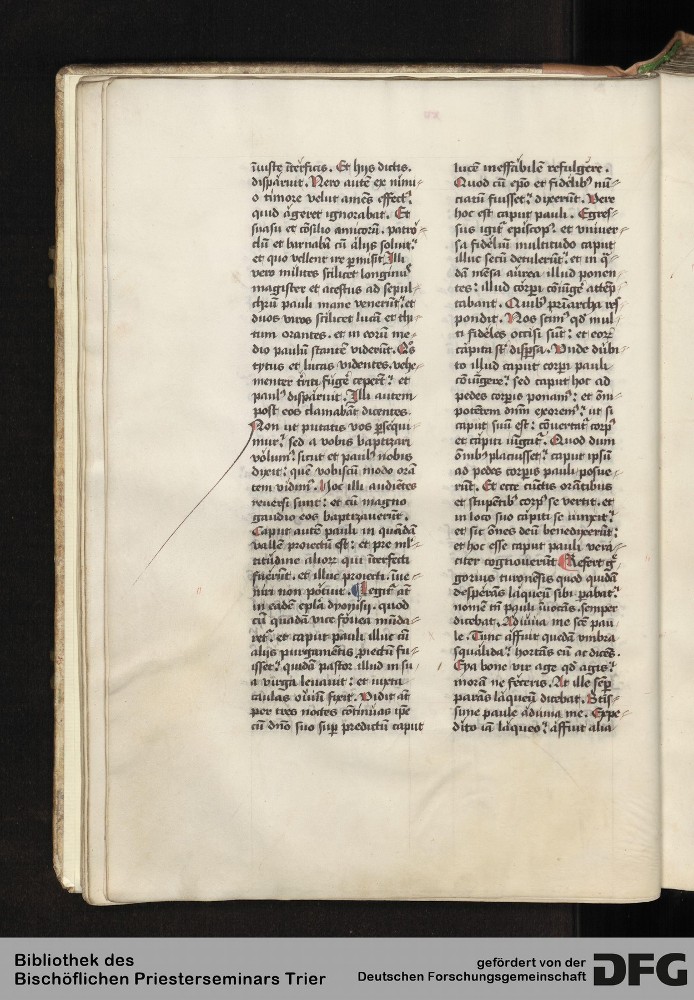 iniuste īterficis. Et hijs dictis.
disparuit. Nero autē ex nimi⸗
o timore velut amēs effect9
quid ageret ignorabat. Et
suasu et cōsilio amicorū. patro⸗
clū et barnabā cū alijs soluit.
et quo vellent ire ꝑmisit. Illi
vero milites scilicet longinus
magister et acestus ad sepul⸗
chrū pauli mane venerūt. et
duos viros scilicet lucā et thi⸗
tum orantes. et in eorū me⸗
dio paulū stantē viderūt. Qs
tytus et lucas videntes. vehe⸗
menter triti fugē ceperūt. et
paulꝰ disparuit. Illi autem
post eos clamabāt dicentes.
Non ut putatis vos ꝑsequi⸗
mur. sed a vobis baptizari
volumꝰ. sicut et paulꝰ nobis
dixit. quē vobiscū modo orā
tem vidimꝰ. Hoc illi audiētes
reuersi sunt. et cū magno
gaudio eos baptizauerūt.
Caput autē pauli in quādā
vallē proiectū est. et pre ml⸗
titudine alior qui īterfecti
fuerūt. et illuc proiecti. īue⸗
niri non potuit. Legit᷑ at̄
in eadē epl̄a dyonisij. quod
cū quadā vice fouea mūda⸗
ret᷑. et caput pauli illuc cū
alijs purgamētis ꝓiectū fu⸗
isset. quidā pastor illud in su⸗
a virga leuauit. et iuxta
caulas ouiū fixit. Vidit at̄
per tres noctes cōtinuas ip̄e
cū dn̄o suo suꝑ predictū caput
lucē ineffabilē refulgere.
Quod cū ep̄o et fidelibꝰ nū⸗
ciatū fuisset. dixerūt. Vere
hoc est caput pauli. Egres⸗
sus igit᷑ episcopꝰ. et vniuer⸗
sa fidelium multitudo caput
illuc secū detulerūt. et in q̄⸗
dā mēsa aurea illud ponen⸗
tes. illud corpi cōiūgē attēp⸗
tabant. Quibꝰ pr̄iarcha res⸗
pondit. Nos scimꝰ qd̄ mul⸗
ti fideles occisi sūt. et eorꝝ
capita sūt disꝑsa. Vnde dubi⸗
to illud caput corpi pauli
cōiūgere. sed caput hoc ad
pedes corpis ponamꝰ. et ōni⸗
potētem dnm̄ exoremꝰ. ut si
caput suū est. cōuertat᷑ corpꝰ
et capiti iūgat᷑. Quod dum
ōnibꝰ placuisset. caput ipsū
ad pedes corpis pauli posue⸗
rūt. Et ecce cūctis orātibus
et stupētibꝰ corpꝰ se vertit. et
in loco suo capiti se iunxit.
et sic ōnes deū benedixerūt.
et hoc esse caput pauli vera⸗
citer cognouerūt. Refert g̊⸗
gorius turonēsis quod quidā
desperās laqueū sibi ꝑabat.
nomē tn̄ pauli īuocās. semper
dicebat. Adiuua me scē pau⸗
le. Tunc affuit quedā vmbra
squalida. hortās eū ac dicēs.
Eya bone vir age qd̄ agis.
morā ne feceris. At ille semꝑ
parās laqueū dicebat. Btīs⸗
sime paule adiuua me. Expe⸗
dito iā laqueo. affuit alia
Bibliothek des
Bischöflichen Priesterseminars Trier
gefördert von der
Deutschen Forschungsgemeinschaft
DFG